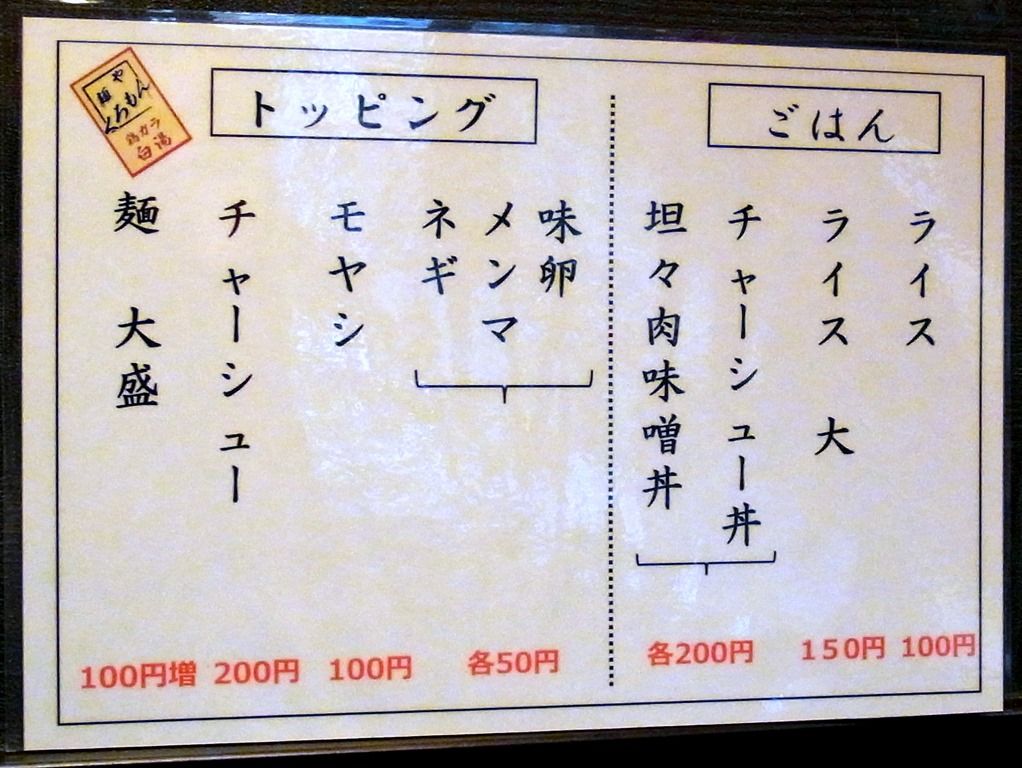 ごはん
ライス
100円
ライス 大
150円
チャーシュー丼
坦々肉味噌丼
各200円
トッピング
味卵
メンマ
ネギ
各50円
モヤシ
100円
チャーシュー
200円
麺 大盛
100円増
麺や
くろもん
鶏ガラ
白湯